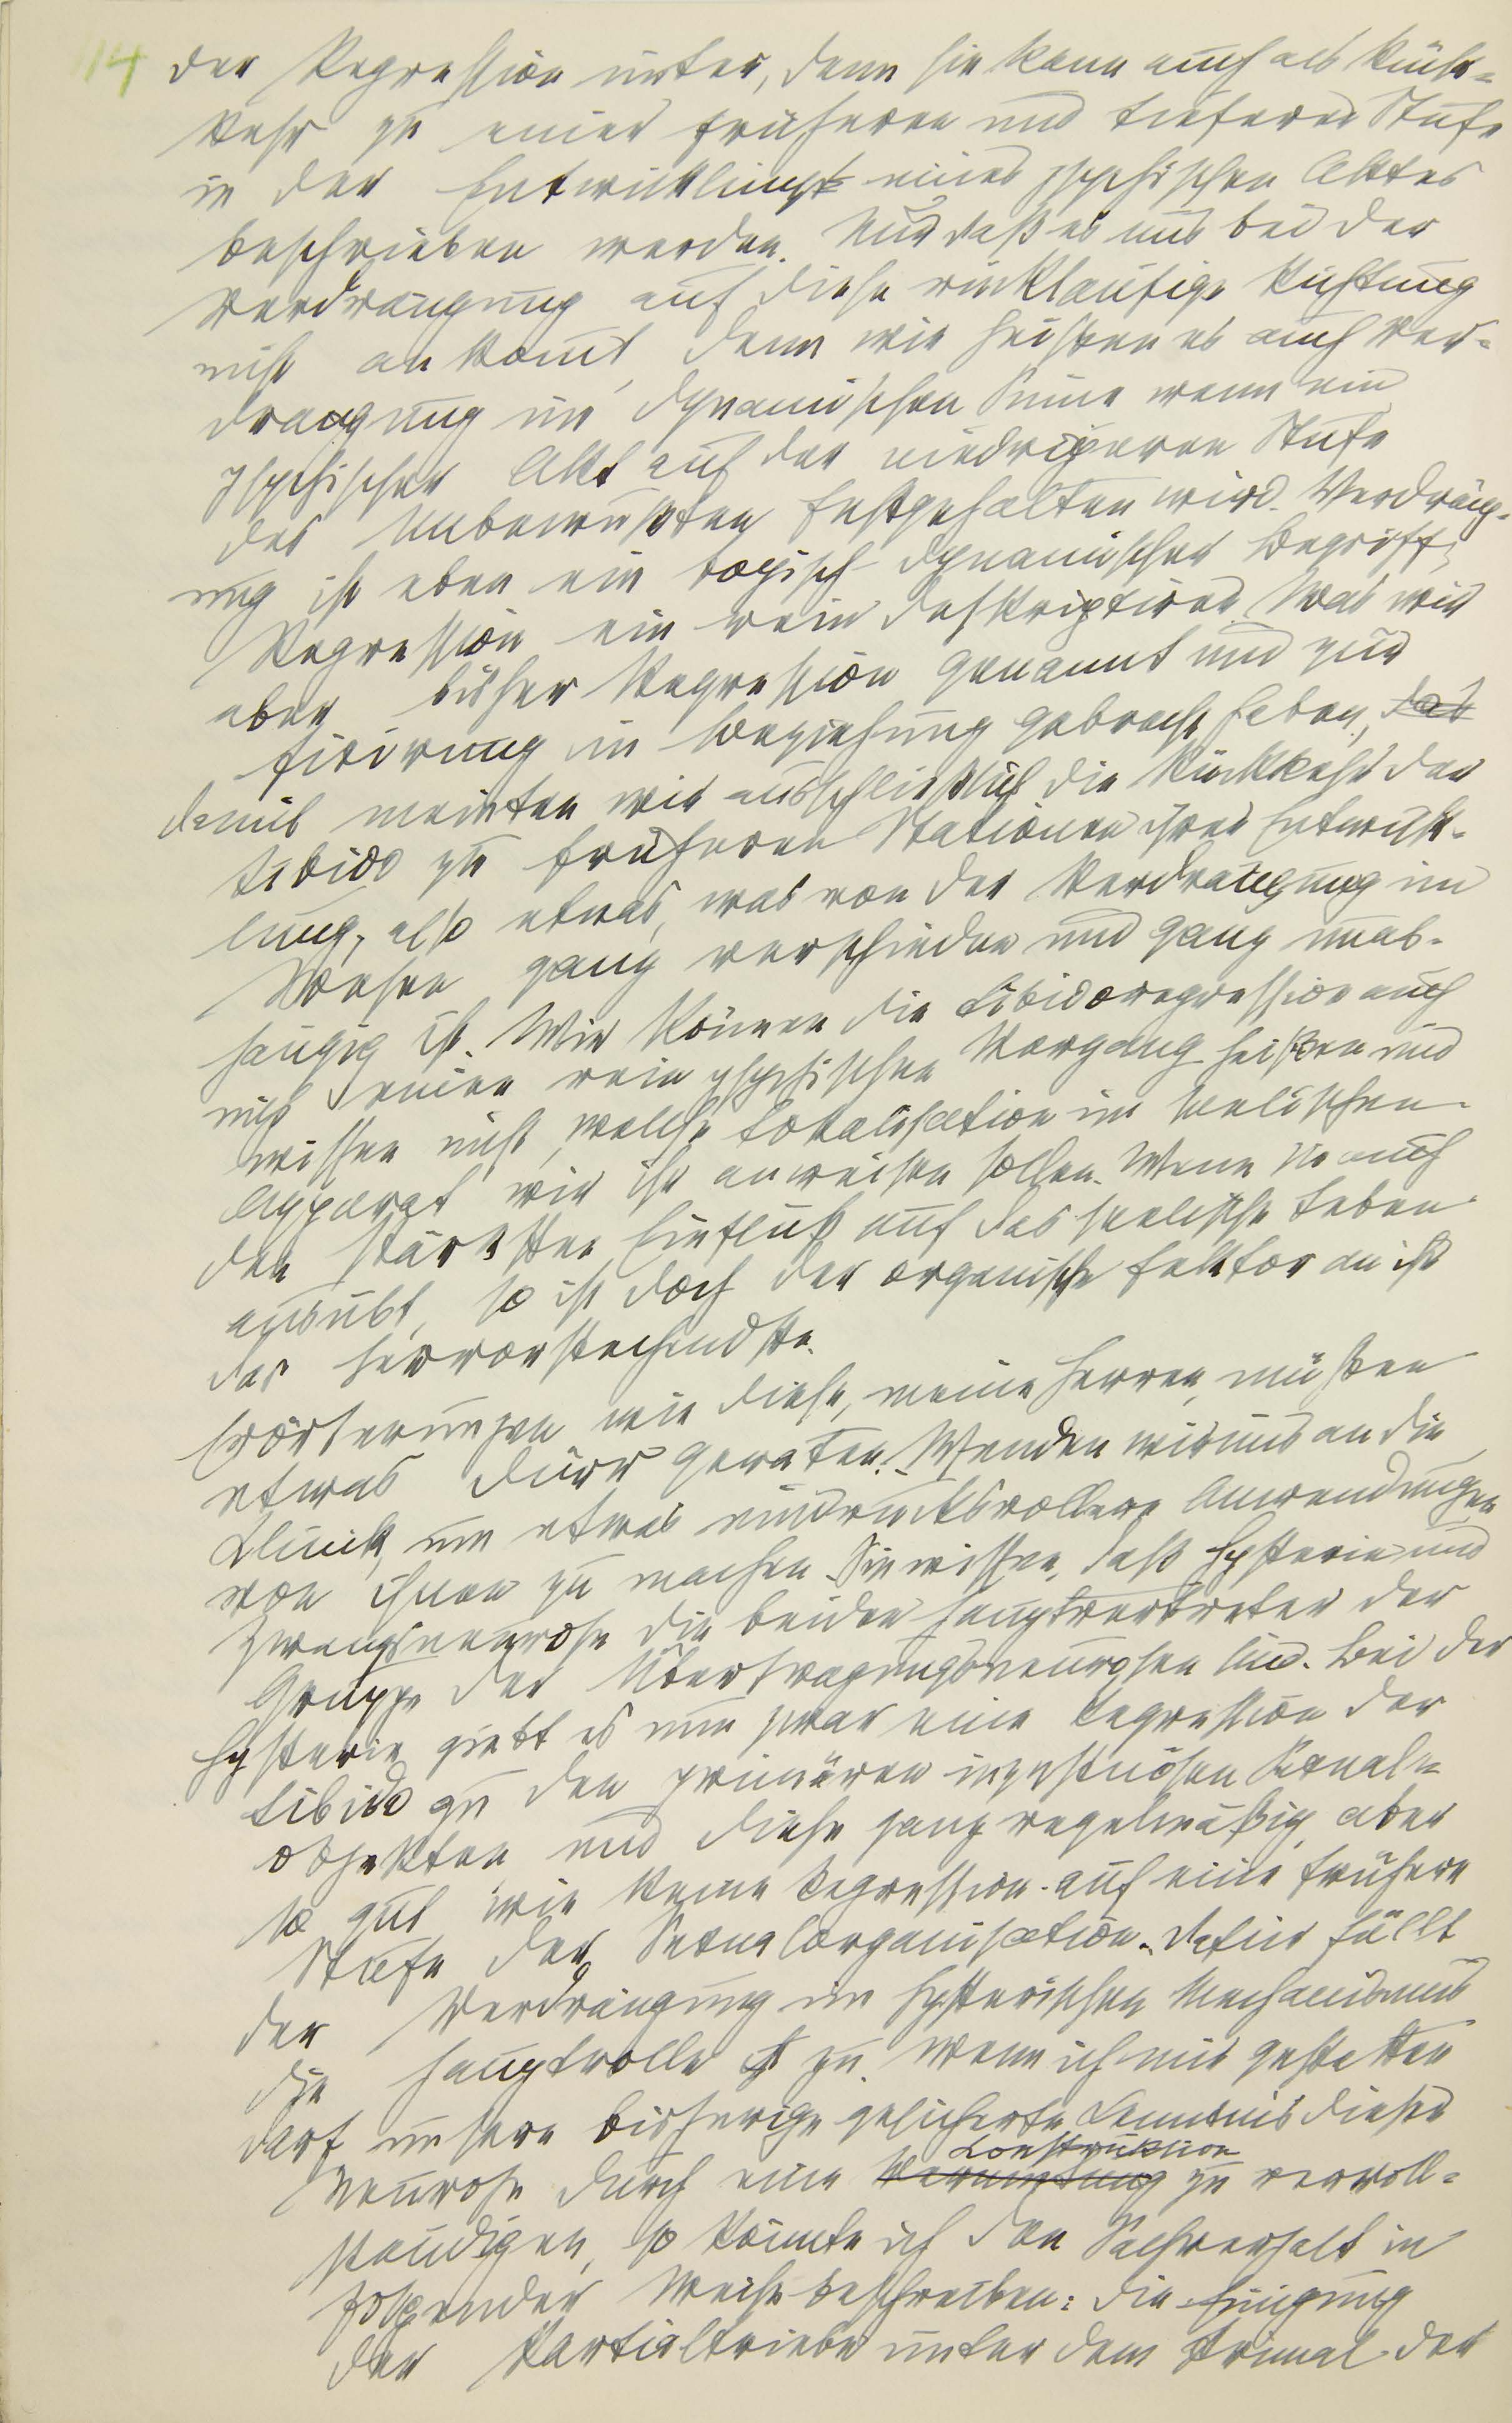 14
der Regression unter, denn sie kann auch als Rück-
kehr zu einer früheren und tieferen Stufe
in der Entwicklung eines psychischen Aktes
beschrieben werden. Nur daß es uns bei der
Verdrängung auf diese rückläufige Richtung
nicht ankomt, denn wir heißen es auch Ver-
drängung im dynamischen Sinne wenn ein
psychischer Akt auf der niedrigeren Stufe
des Unbewußten festgehalten wird. Verdräng-
ung ist eben ein topisch-dynamischer Begriff,
Regression ein rein deskriptiver. Was wir
aber bisher Regression genannt und zur
Fixirung in Beziehung gebracht haben, das
damit meinten wir ausschließlich die Rückkehr der
Libido zu früheren Stationen ihrer Entwick-
lung, also etwas, was von der Verdrängung im
Wesen ganz verschieden und ganz unab-
hängig ist. Wir können die Libidoregression auch
nicht einen rein psychischen Vorgang heißen und
wissen nicht, welche Lokalisation im seelischen
Apparat wir ihr anweisen sollen. Wenn sie auch
den stärksten Einfluß auf das seelische Leben
ausübt, so ist doch der organische Faktor an ihr
der hervorstechendste.
Erörterungen wie diese, meine Herren, müßen
etwas dürr geraten. Wenden wir uns an die
Klinik, um etwas eindrucksvollere Anwendungen
von ihnen zu machen. Sie wissen, daß Hysterie und
Zwangsneurose die beiden Hauptvertreter der
Gruppe der Übertragungsneurosen sind. Bei der
Hysterie giebt es nun zwar eine Regression der
Libido zu den primären inzestuösen Sexual-
objekten, und diese ganz regelmäßig, aber
so gut wie keine Regression auf eine frühere
Stufe der Sexualorganisation. Dafür fällt
der Verdrängung im hysterischen Mechanismus
die Hauptrolle zu. Wenn ich mir gestatten
darf unsere bisherige gesicherte Kenntnis dieser
Konstruktion
Neurose durch eine Vermutung zu vervoll-
ständigen, so könnte ich den Sachverhalt in
folgender Weise beschreiben: Die Einigung
der Partialtriebe unter dem Primat der